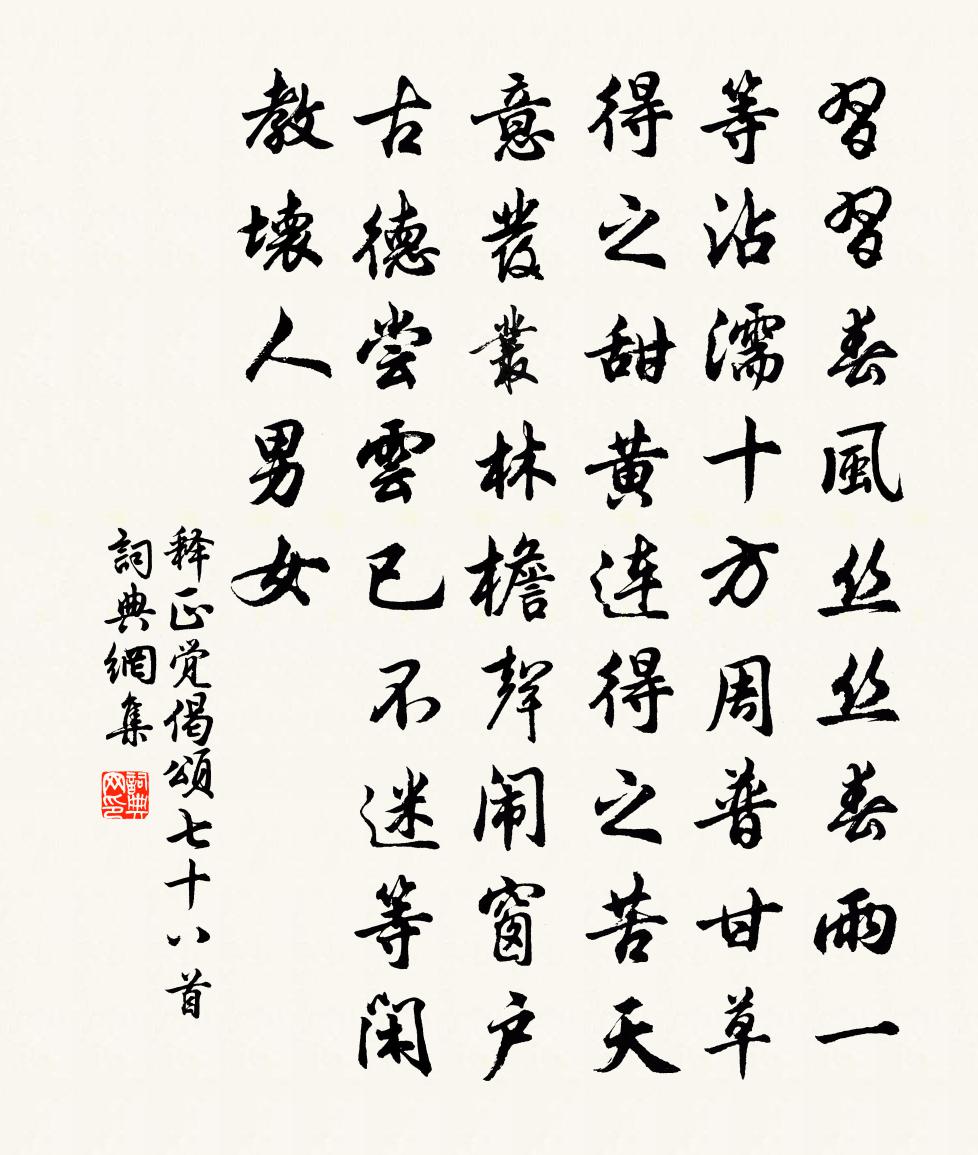 習習春風丝丝春雨一
等沾濡十方周普甘草
得之甜黄连得之苦天
意發叢林檐聲闹窗户
古德尝雲已不迷等闲
教壞人男女
释正觉偈頌七十八首
詞典網集
詞典网印